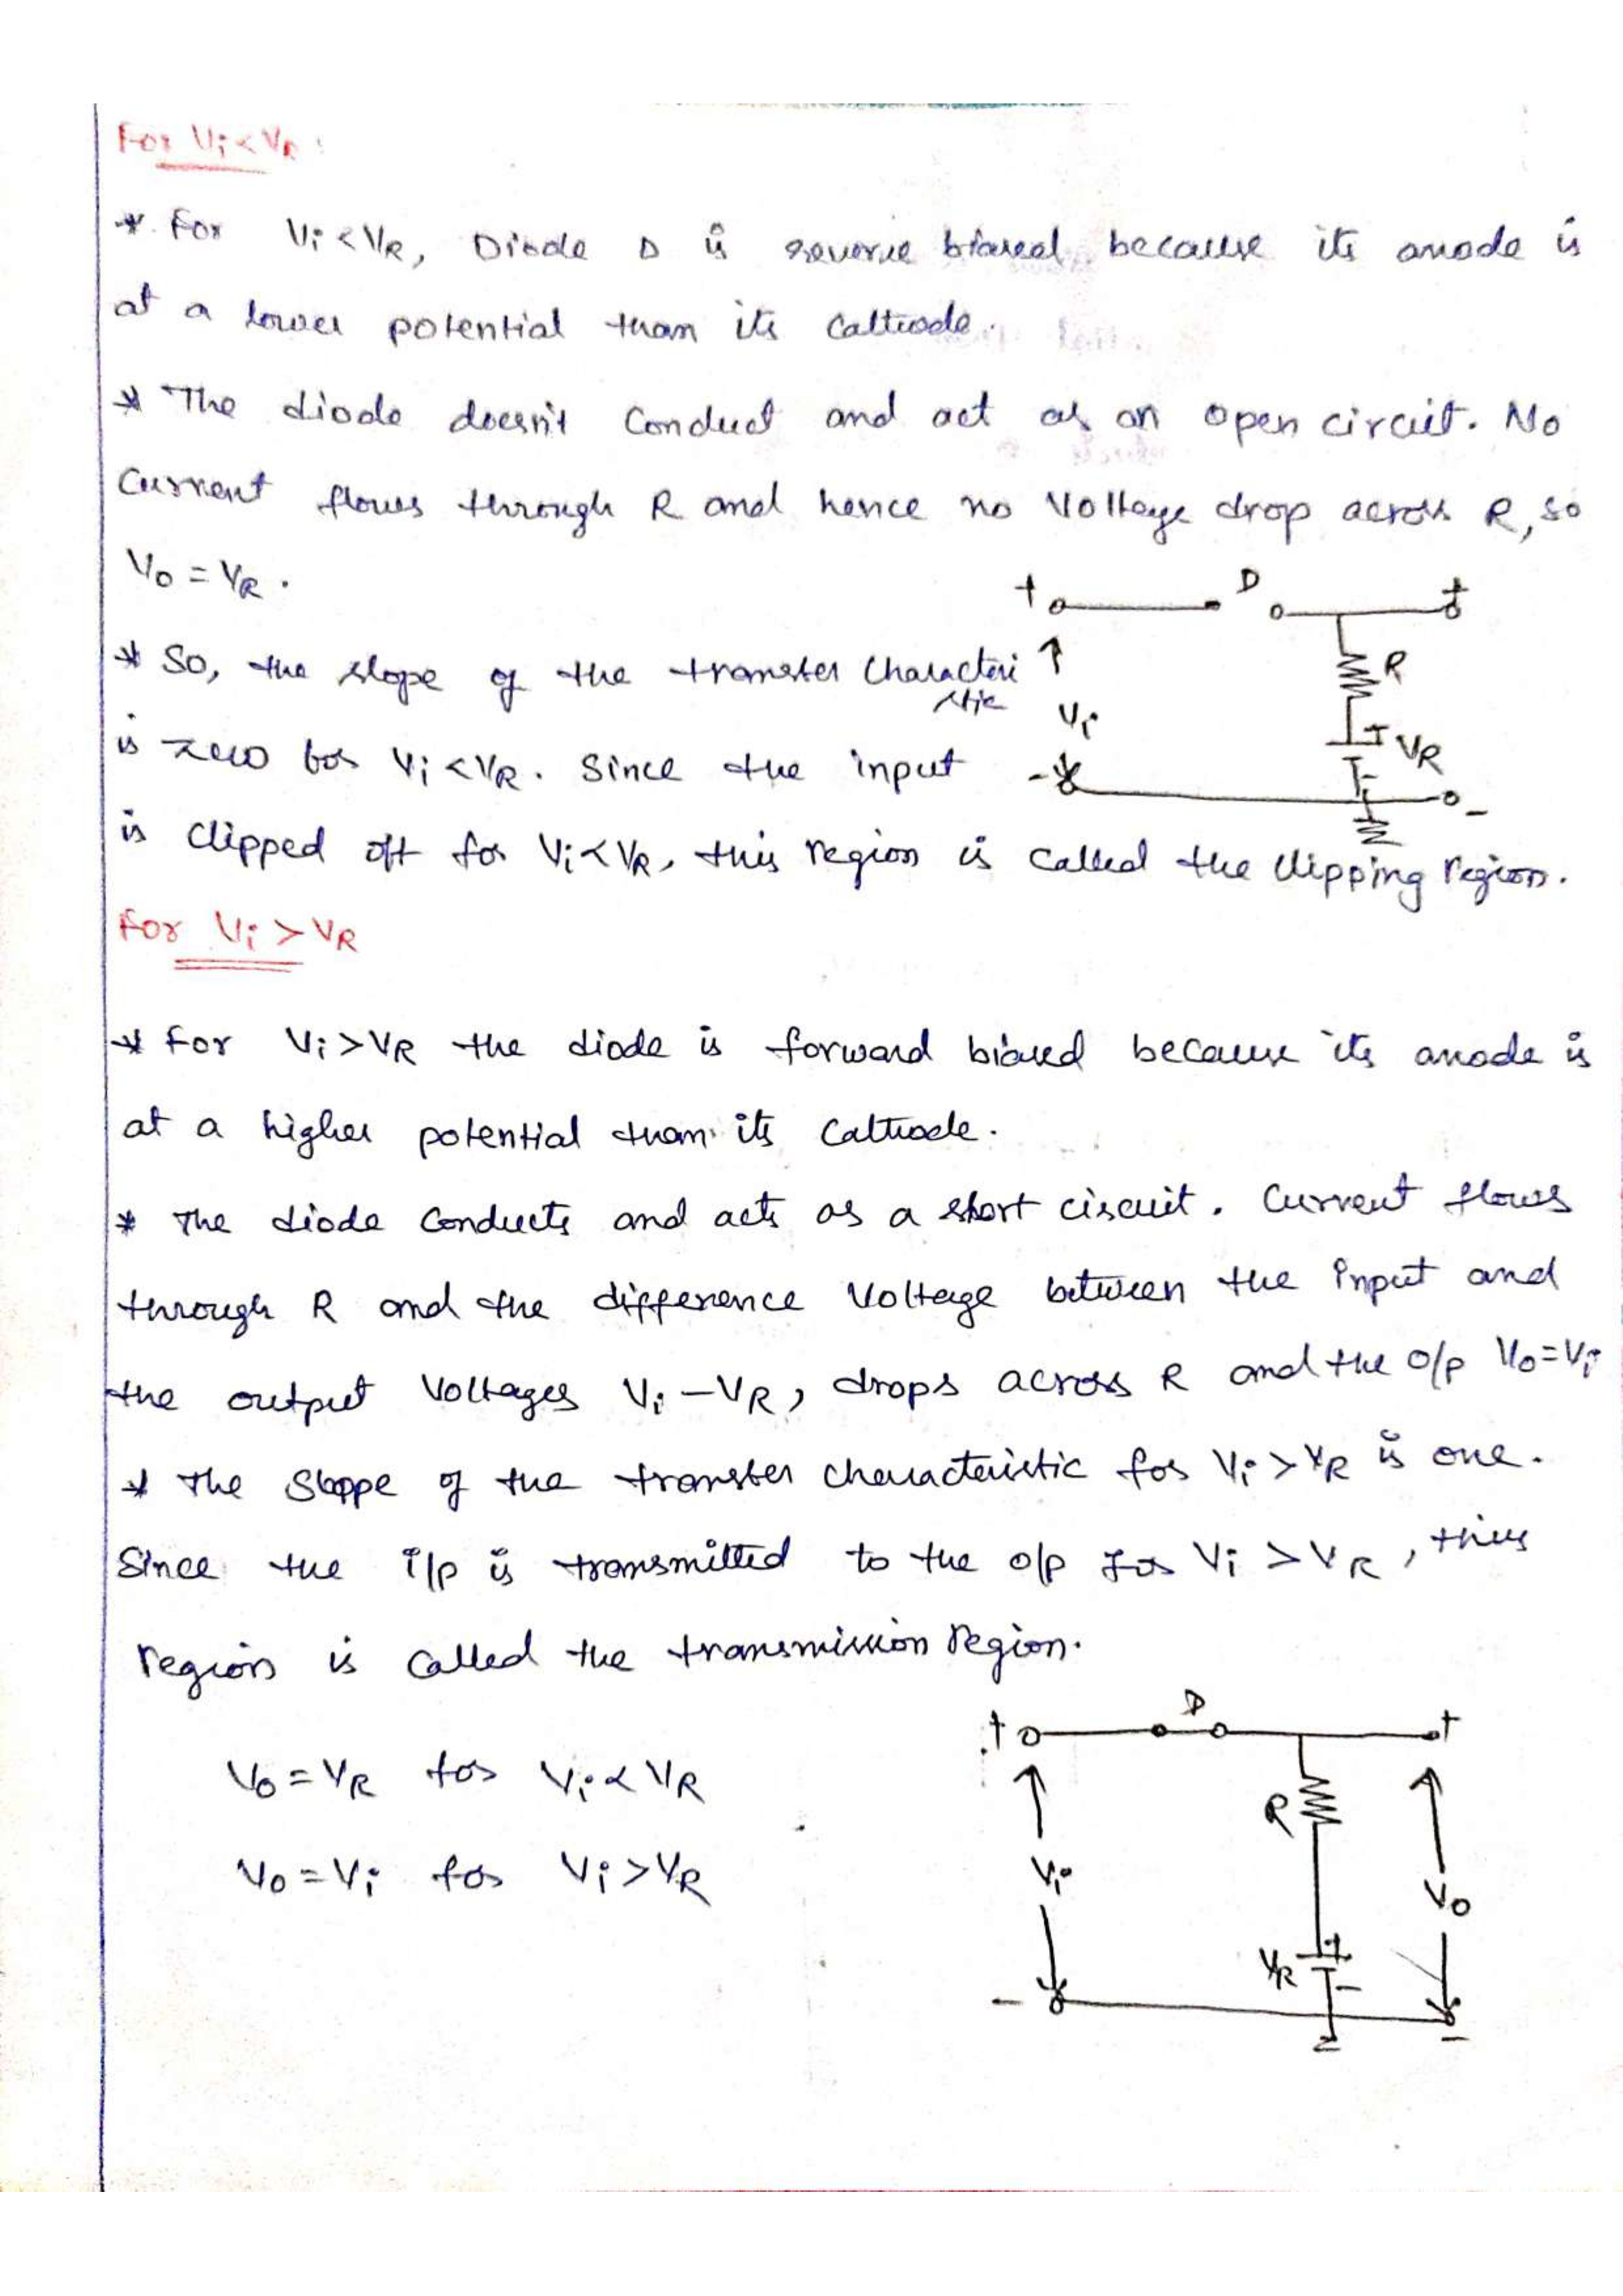 For Vi < VR :
* For Vi < VR, Diode D is reverse biased because its anode is
at a lower potential than its cathode.
* The diode doesn't conduct and act as an open circuit. No
current flows through R and hence no voltage drop across R, so
Vo = VR .
+ D +
* So, the slope of the transfer Characteri
stic
R
Vi
is zero for Vi < VR. Since the input
+ VR
- -
-
is clipped off for Vi < VR, this region is called the clipping region.
For Vi > VR
* For Vi > VR the diode is forward biased because its anode is
at a higher potential than its cathode.
* The diode conducts and acts as a short circuit. Current flows
through R and the difference voltage between the input and
the output voltages Vi - VR, drops across R and the o/p Vo = Vi
* The Sloppe of the transfer characteristic for Vi > VR is one.
Since the i/p is transmitted to the o/p for Vi > VR, this
region is called the transmission region.
+ D +
Vo = VR for Vi < VR
R
Vo = Vi for Vi > VR
Vi
Vo
VR +
-
- -